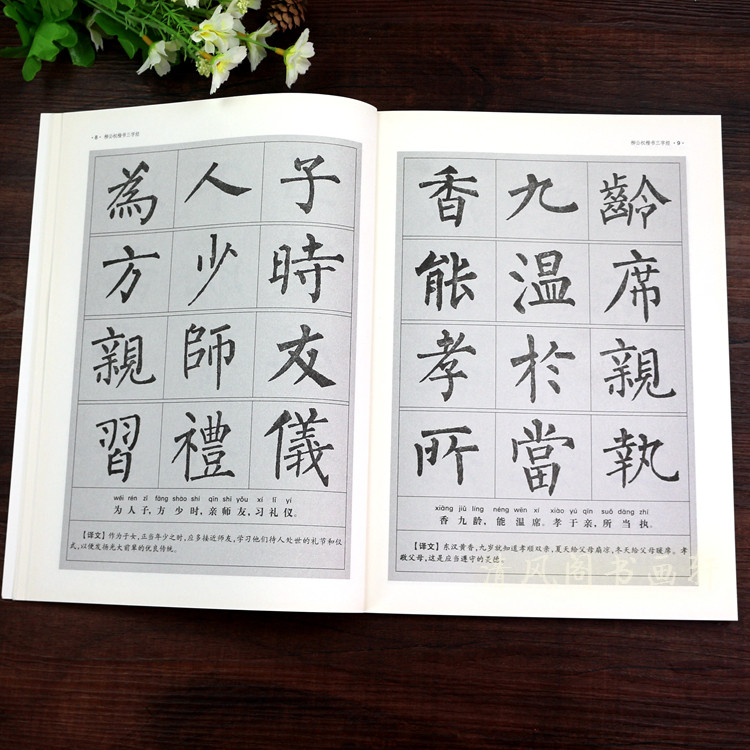 ·8· 柳公权楷书三字经
為人子
方少時
親師友
習禮儀
wéi rén zǐ fāng shào shí qīn shī yǒu xí lǐ yí
为人子,方少时,亲师友,习礼仪。
【译文】作为子女,正当年少之时,应多接近师友,学习他们待人处世的礼节和仪
式,以便发扬光大前辈的优良传统。
柳公权楷书三字经 ·9·
香九齡
能温席
孝於親
所當執
xiāng jiǔ líng néng wēn xí xiào yú qīn suǒ dāng zhí
香九龄,能温席。孝于亲,所当执。
【译文】东汉黄香,九岁就知道孝顺双亲,夏天给父母扇凉,冬天给父母暖席。孝
敬父母,这是应当遵守的美德。
清风阁书画